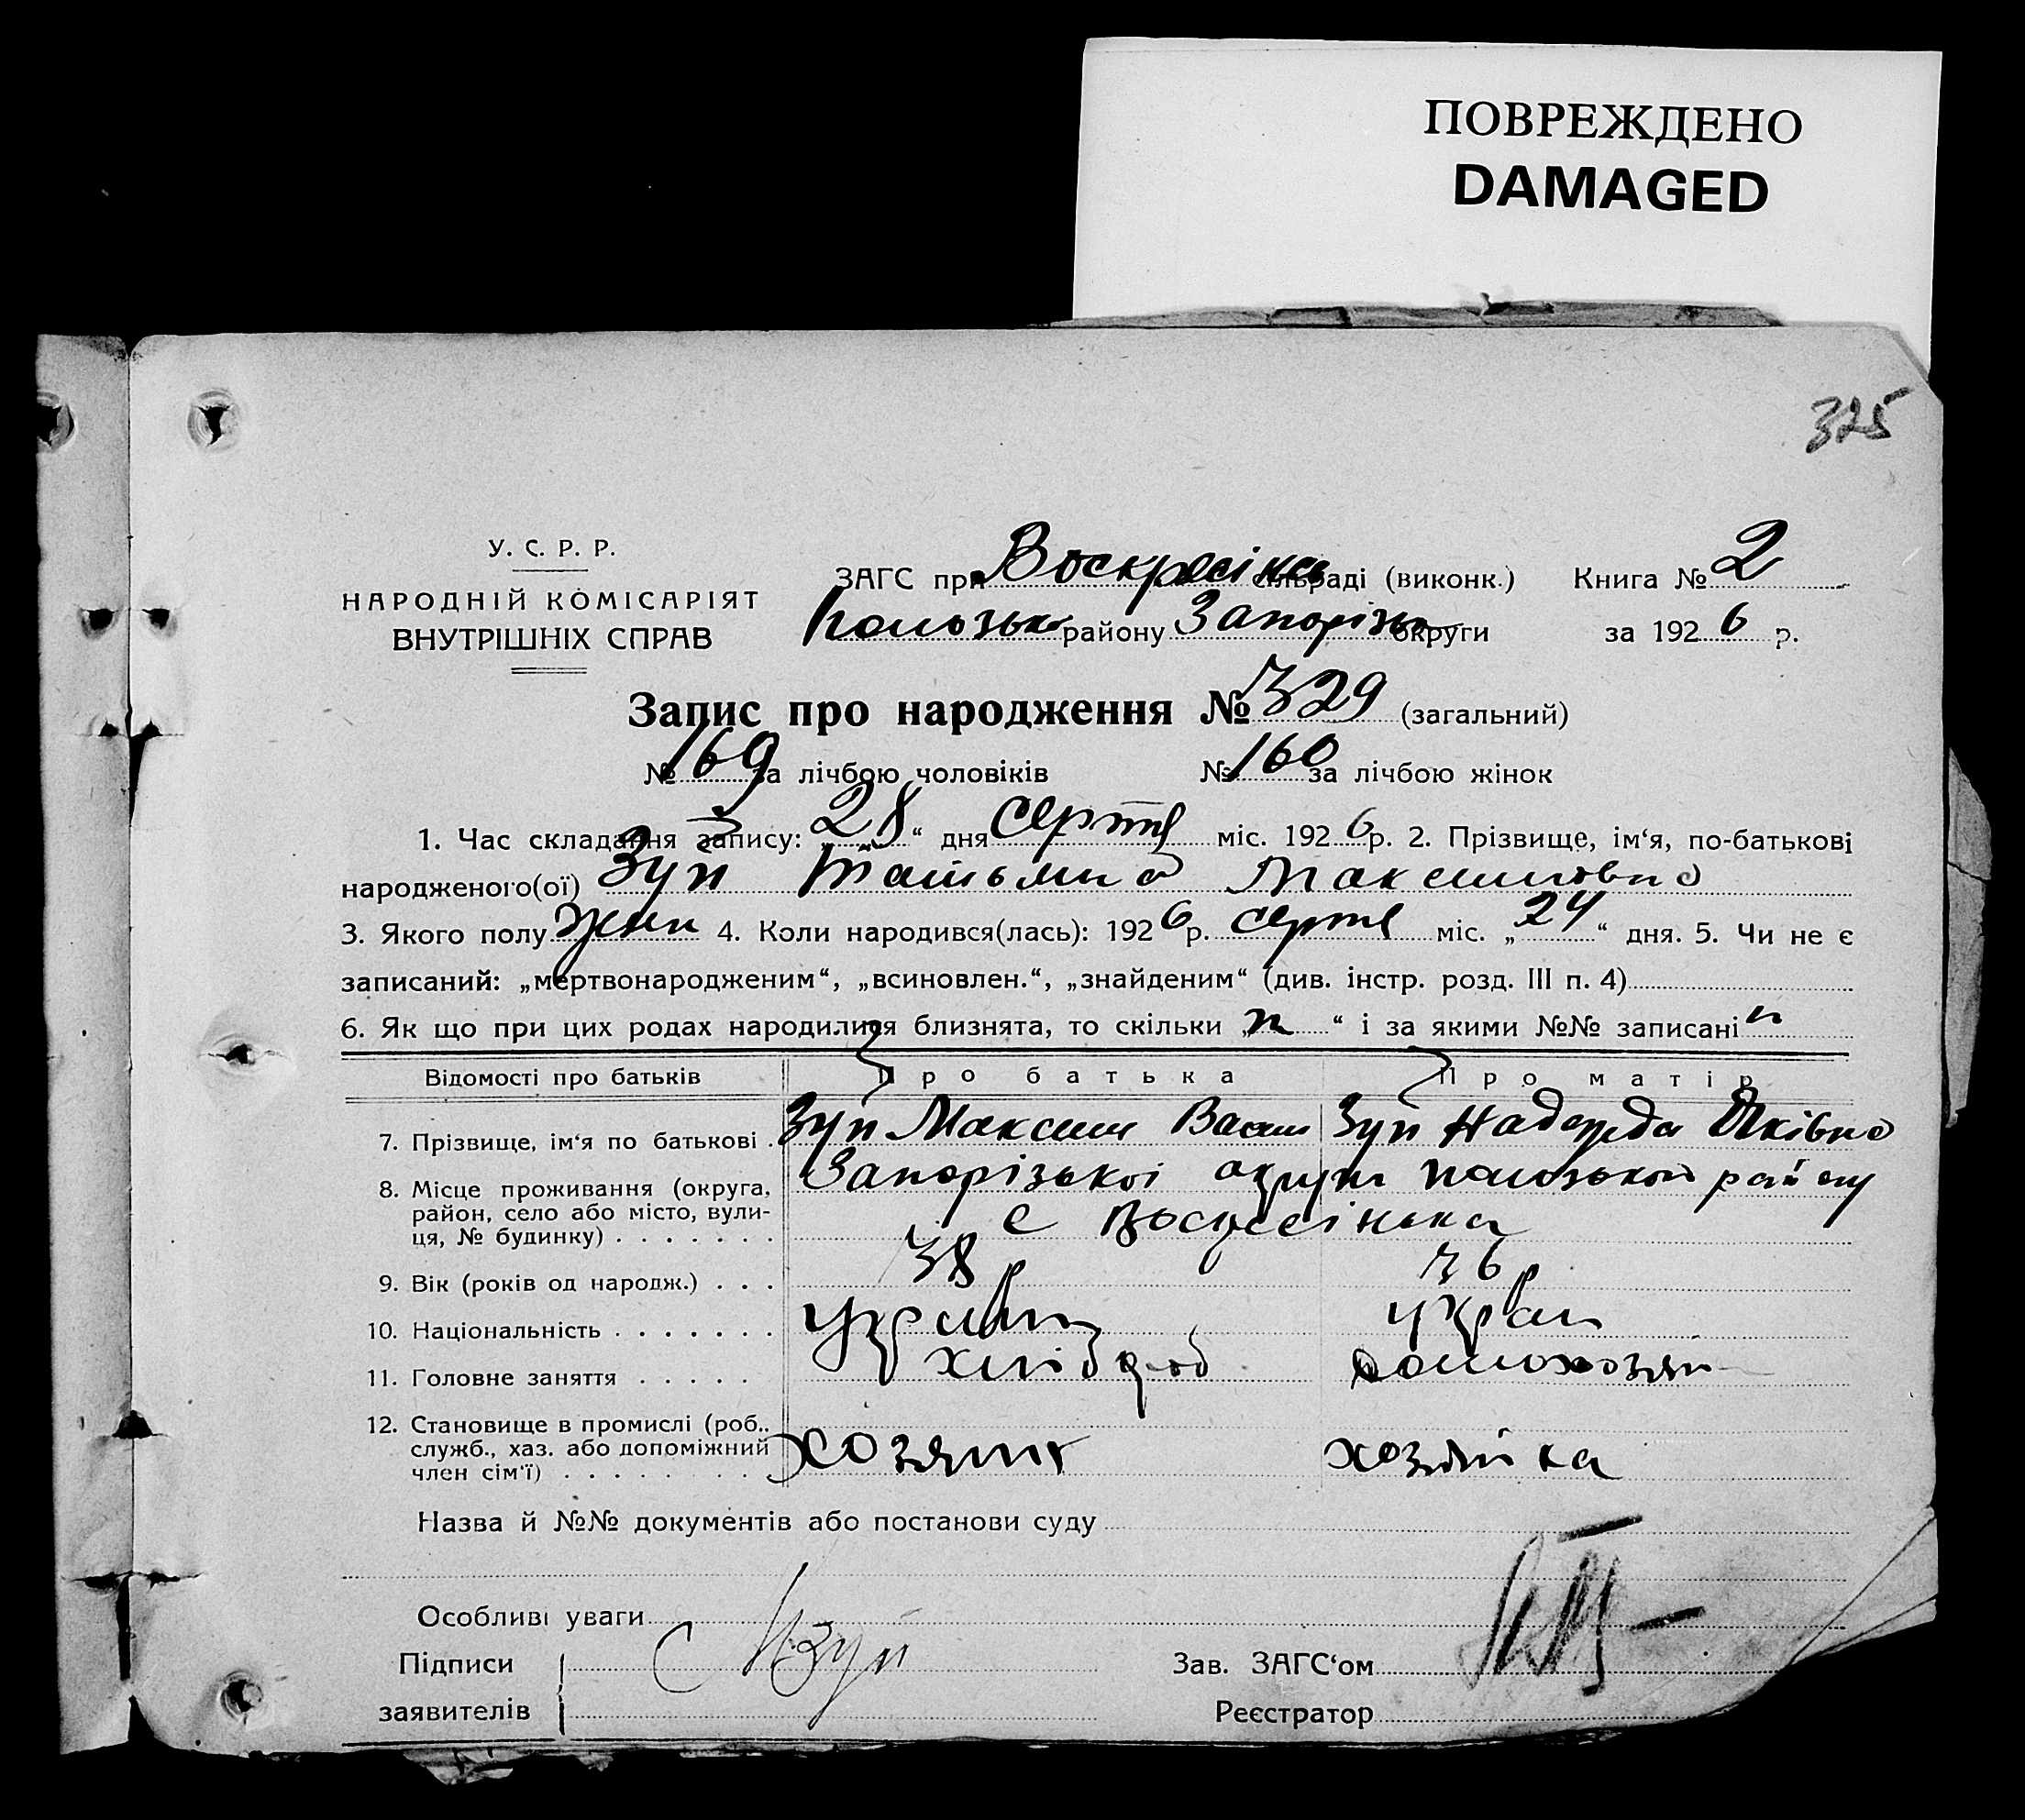 ПОВРЕЖДЕНО
DAMAGED
325
У. С. Р. Р.
НАРОДНІЙ КОМІСАРІЯТ
ВНУТРІШНІХ СПРАВ
ЗАГС при Воскресінск сільраді (виконк.) Книга № 2
Полозьк району Запорізьк округи за 1926 р.
Запис про народження № 329 (загальний)
№ 169 за лічбою чоловіків № 160 за лічбою жінок
1. Час складання запису: „28“ дня серпня міс. 1926 р. 2. Прізвище, ім‘я, по-батькові
народженого(ої) Зуй Татьяна Максимовна
3. Якого полу жен 4. Коли народився(лась): 1926 р. серпня міс. „24“ дня. 5. Чи не є
записаний: „мертвонародженим“, „всиновлен.“, „знайденим“ (див. інстр. розд. III п. 4)
6. Як що при цих родах народилися близнята, то скільки „н“ і за якими №№ записані н
Відомості про батьків Про батька Про матір
7. Прізвище, ім‘я по батькові . Зуй Максим Васил Зуй Надежда Яківна
8. Місце проживання (округа, район, село або місто, вулиця, № будинку) . . . . . . . Запорізької округи Полозького району
с Воскресінька
9. Вік (років од народж.) . . . 38 р 36 р
10. Національність . . . . . . . україн укра
11. Головне заняття . . . . . хлібороб домохозяй
12. Становище в промислі (роб., служб., хаз. або допоміжний член сім‘ї) . . . . . . . . хозяин хозяйка
Назва й №№ документів або постанови суду
Особливі уваги
Підписи Зуй Зав. ЗАГС‘ом
заявителів Реєстратор